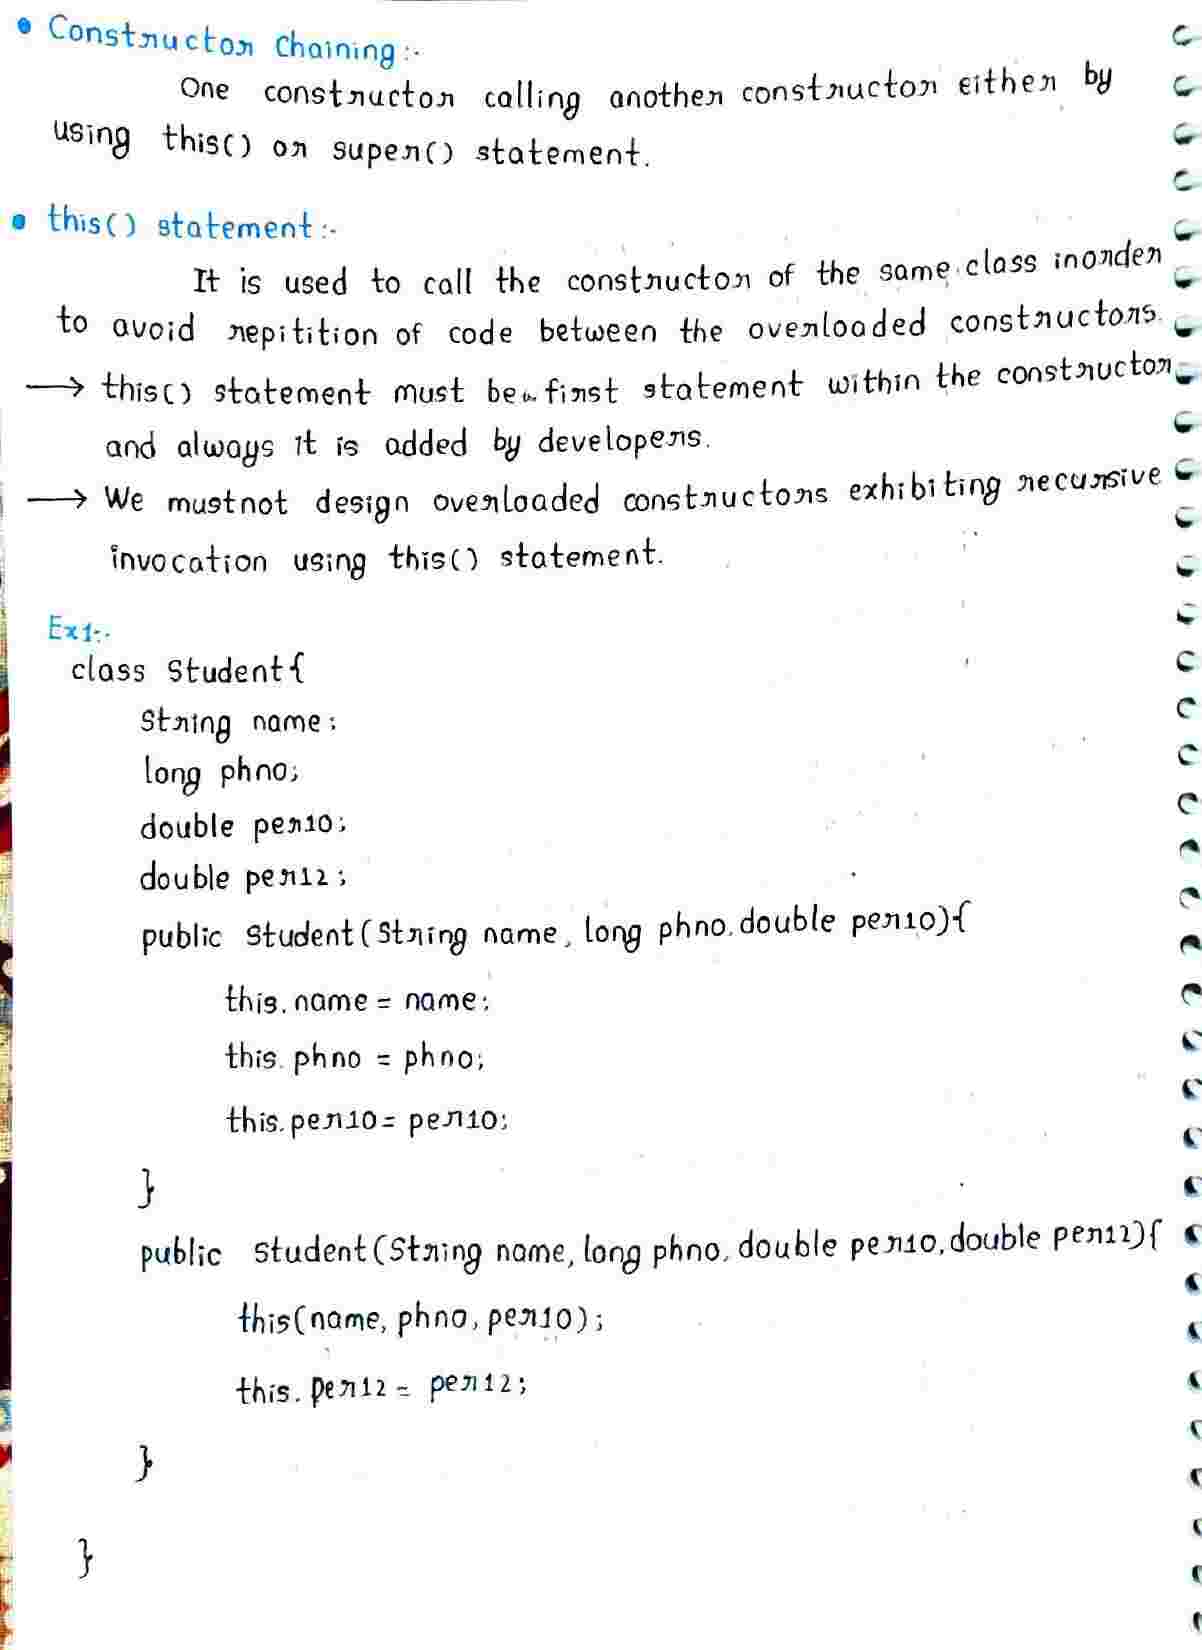 • Constructor Chaining :-
One constructor calling another constructor either by
using this() or super() statement.
• this() statement :-
It is used to call the constructor of the same class inorder
to avoid repitition of code between the overloaded constructors.
→ this() statement must be first statement within the constructor
and always it is added by developers.
→ We mustnot design overloaded constructors exhibiting recursive
invocation using this() statement.
Ex1:-
class Student{
String name;
long phno;
double per10;
double per12;
public Student(String name, long phno, double per10){
this.name = name;
this.phno = phno;
this.per10 = per10;
}
public Student(String name, long phno, double per10, double per12){
this(name, phno, per10);
this.per12 = per12;
}
}